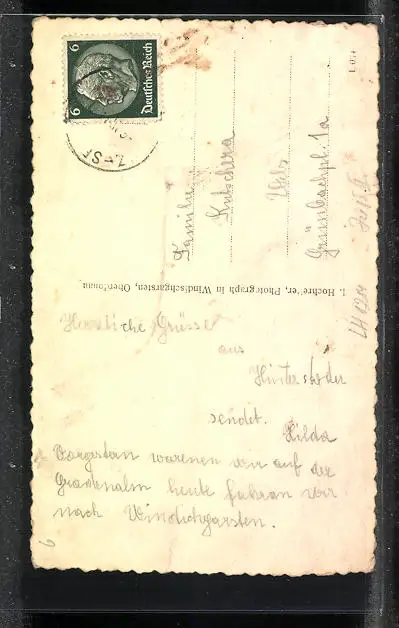 Deutsches Reich
6
6
Familie
Kutschera
Wels
Grünbachpl. 1a
1. Hochreiter, Photograph in Windischgarsten, Oberdonau.
Herzliche Grüsse
aus
Hinterstoder
sendet.
Hilda
Vorgestern warenen wir auf der
heute fuhren wir
nach Windichgarsten.